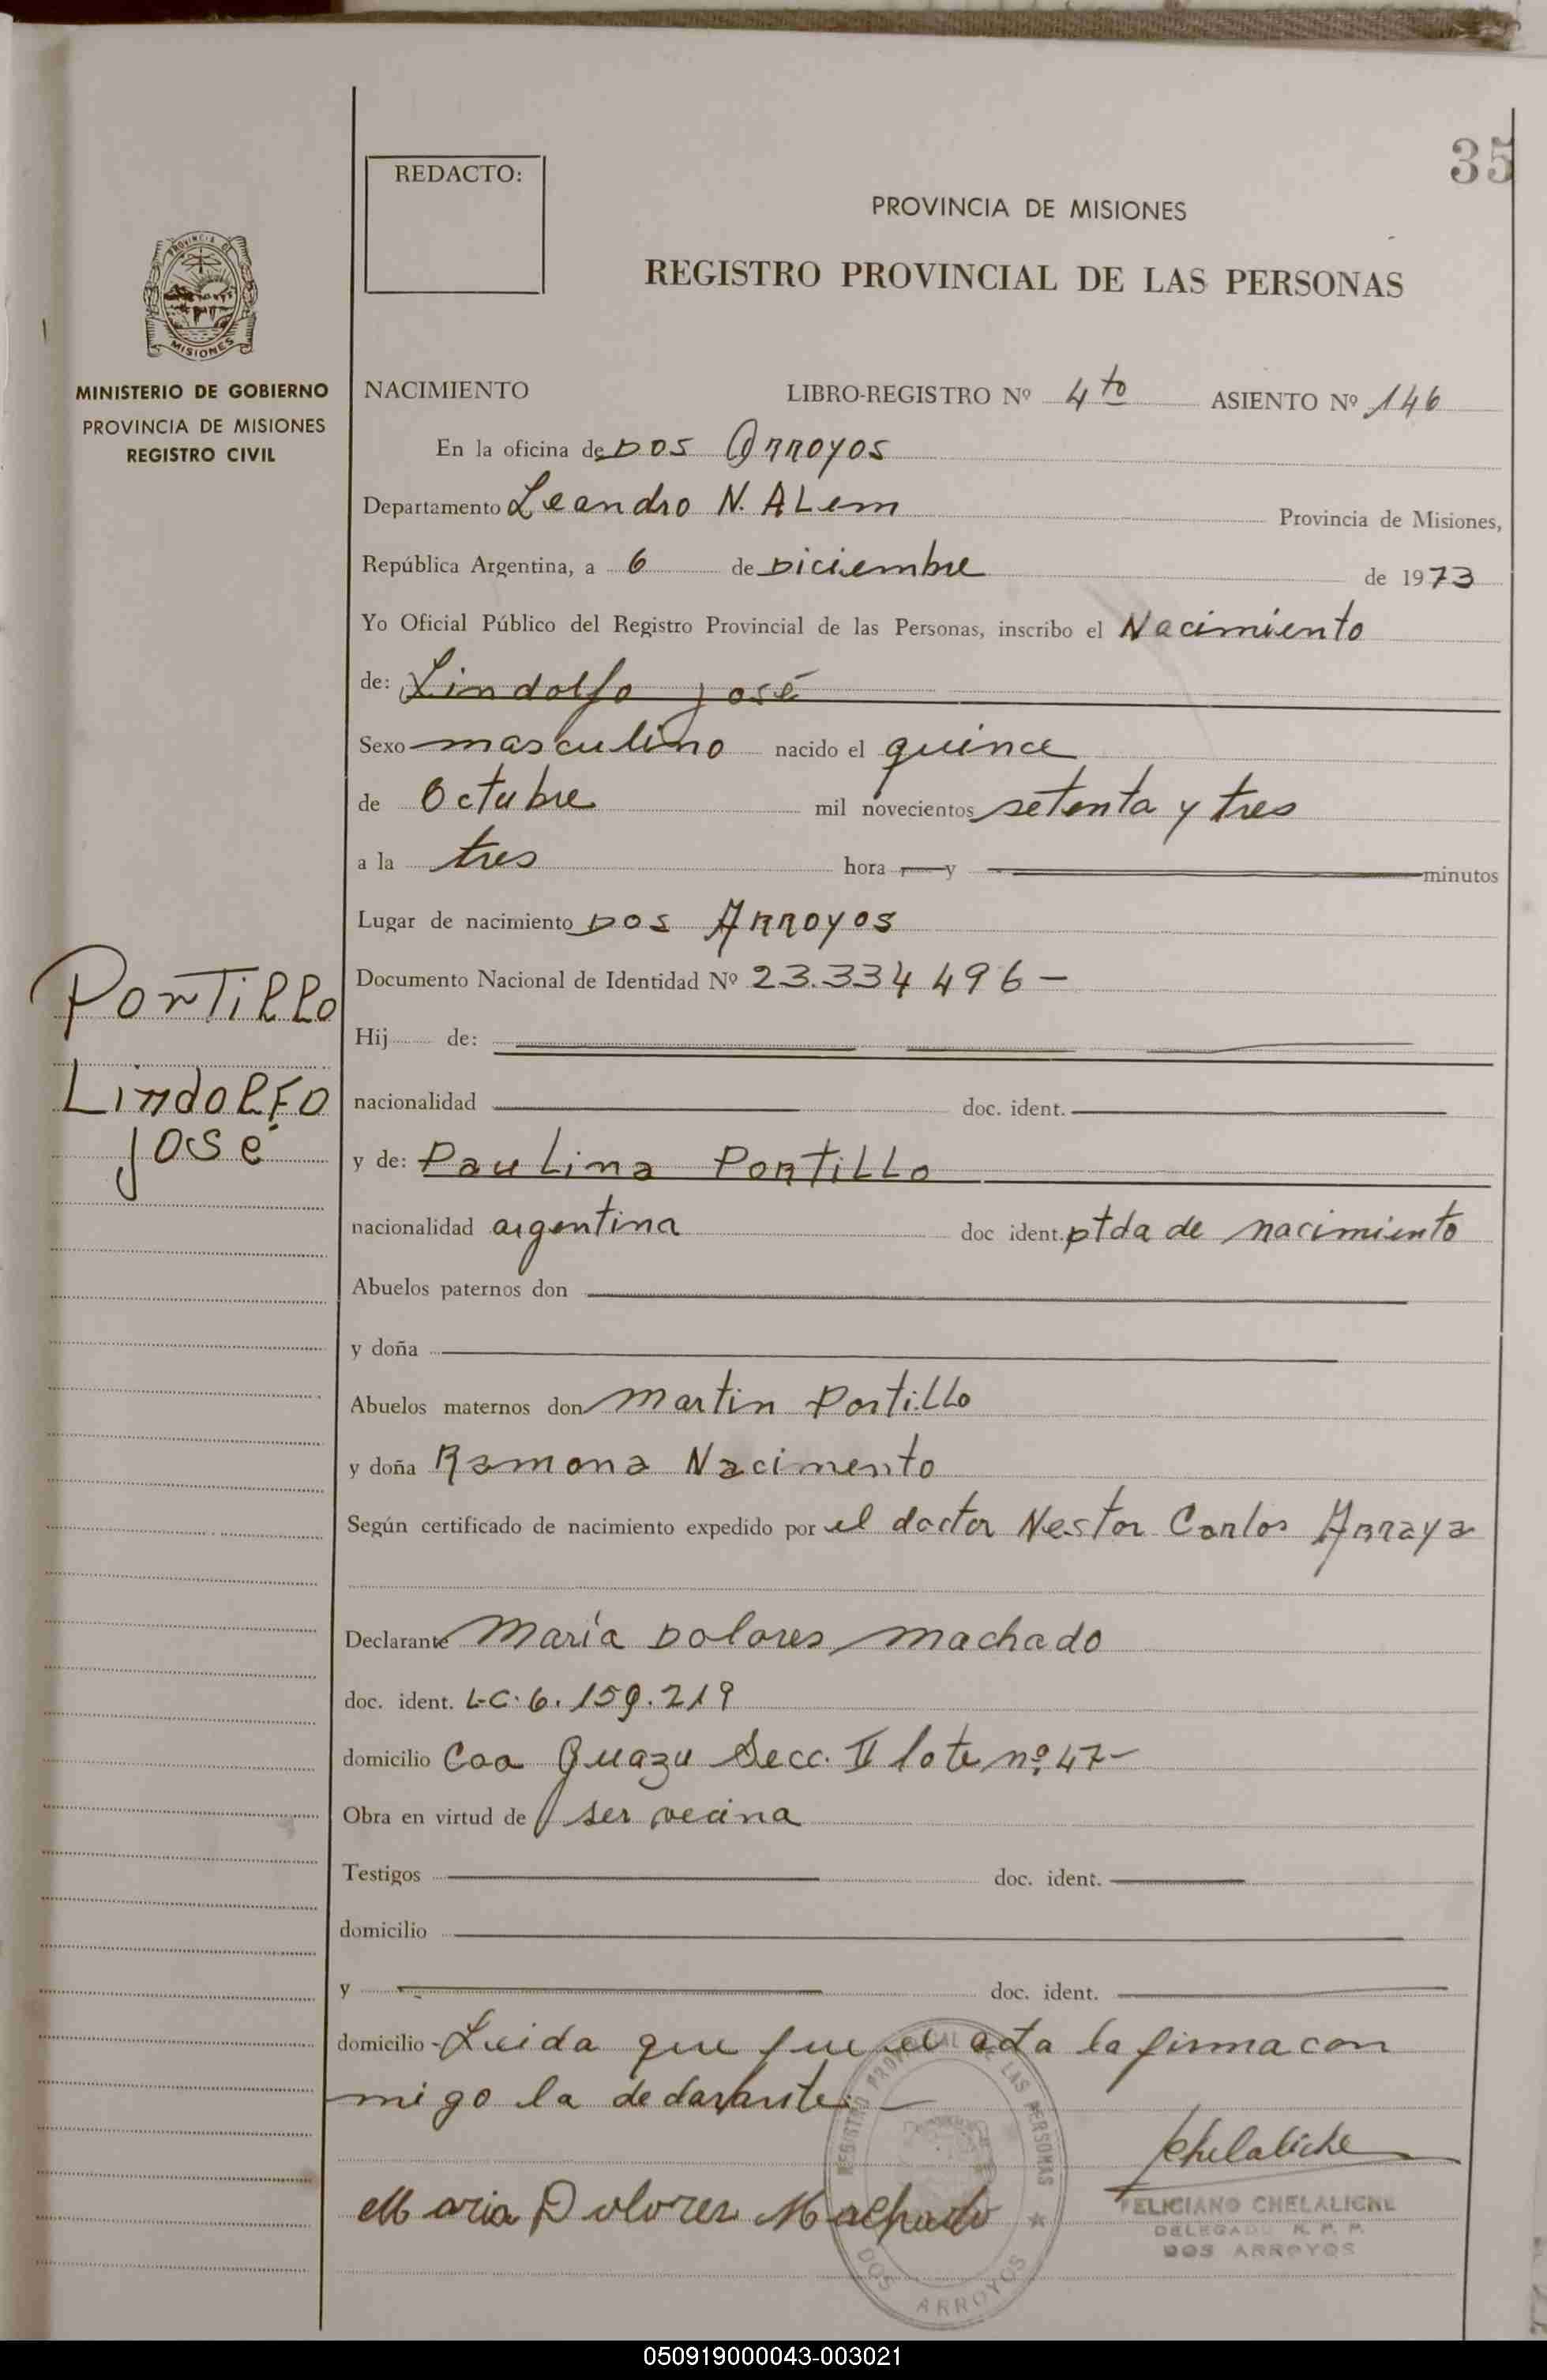 35
REDACTO:
PROVINCIA DE MISIONES
REGISTRO PROVINCIAL DE LAS PERSONAS
PROVINCIA DE
MISIONES
MINISTERIO DE GOBIERNO
PROVINCIA DE MISIONES
REGISTRO CIVIL
NACIMIENTO LIBRO-REGISTRO Nº 4to ASIENTO Nº 146
En la oficina de DOS ARROYOS
Departamento Leandro N. ALem Provincia de Misiones,
República Argentina, a 6 de Diciembre de 1973
Yo Oficial Público del Registro Provincial de las Personas, inscribo el Nacimiento
de: Lindolfo José
Sexo masculino nacido el quince
de Octubre mil novecientos setenta y tres
a la tres hora — y — minutos
Lugar de nacimiento DOS ARROYOS
Documento Nacional de Identidad Nº 23.334 496 —
Hij de:
nacionalidad doc. ident.
y de: Paulina Portillo
nacionalidad argentina doc ident. ptda de nacimiento
Abuelos paternos don
y doña
Abuelos maternos don Martin Portillo
y doña Ramona Nacimento
Según certificado de nacimiento expedido por el doctor Nestor Carlos Arraya
Declarante María Dolores Machado
doc. ident. L.C. 6.159.219
domicilio Caa Guazu Secc. II lote nº 47 —
Obra en virtud de ser vecina
Testigos doc. ident.
domicilio
y doc. ident.
domicilio - Leida que fue el acta la firma con
migo la declarante. —
Maria Dolores Machado
Chelaliche
FELICIANO CHELALICHE
DELEGADO R. P. P.
DOS ARROYOS
REGISTRO PROVINCIAL DE LAS PERSONAS
DOS ARROYOS
PORTILLO
LINDOLFO
José
050919000043-003021